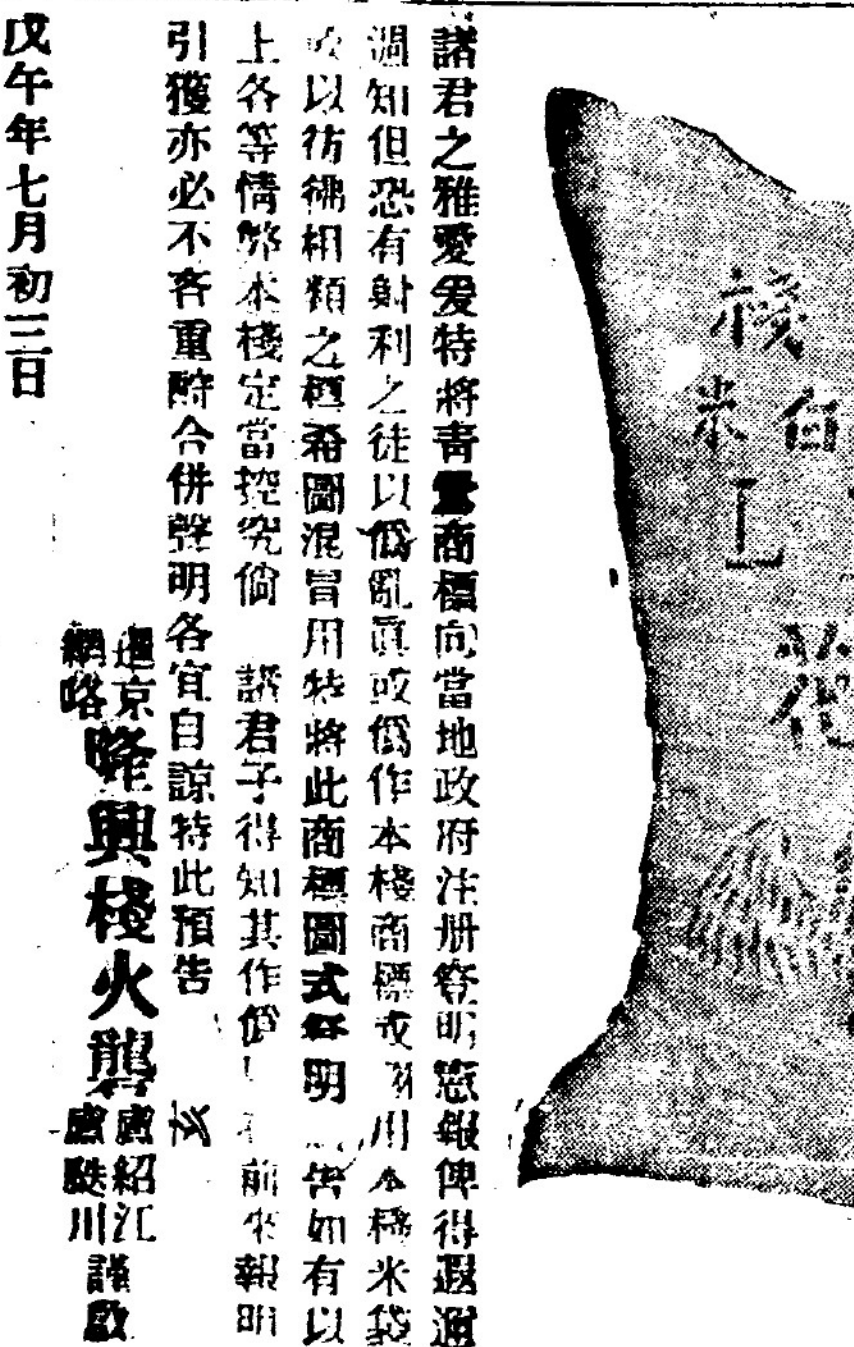 棧
白
米
諸君之雅愛爰特將青鸞商標向當地政府注册登明憲報俾得遐邇
週知但恐有射利之徒以僞亂眞或僞作本棧商標或 用本棧米袋
或以彷彿相類之標希圖混冒用特將此商標圖式登明 告如有以
上各等情弊本棧定當控究倘 諸君子得知其作僞 前來報明
引獲亦必不吝重酧合併聲明各宜自諒特此預告
暹京 隆興棧火礱 盧紹江 謹啟
盧 川
戊午年七月初三日